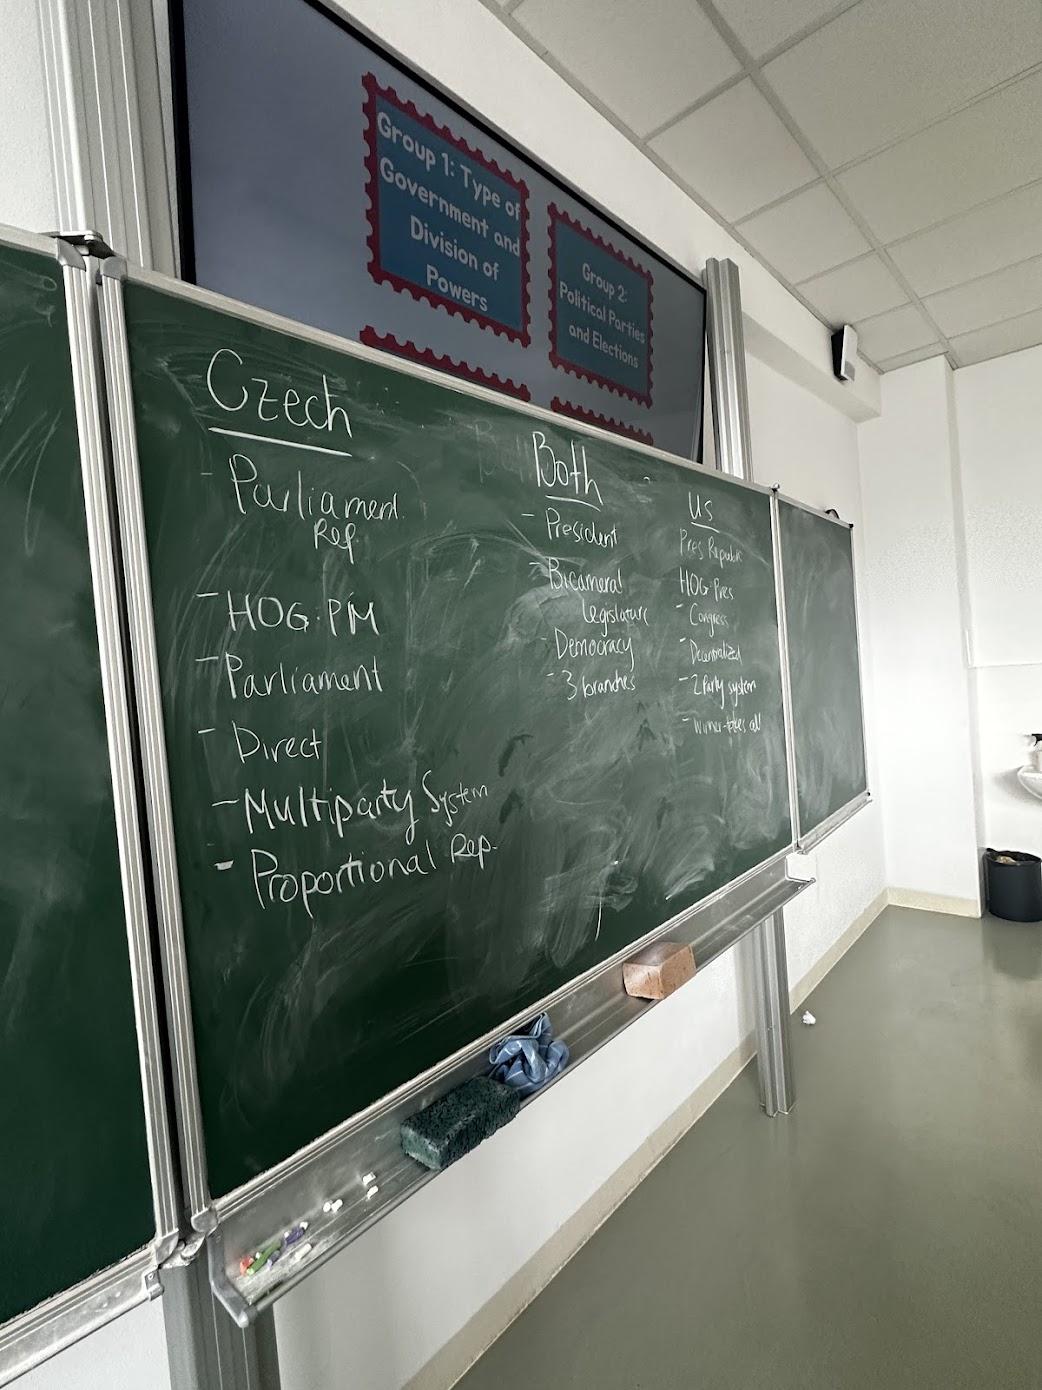 Group 1: Type of
Government and
Division of
Powers
Group 2:
Political Parties
and Elections
Czech
- Parliament.
Rep.
- HOG: PM
- Parliament
- Direct
- Multiparty System
- Proportional Rep.
Both
- President
- Bicameral
legislature
- Democracy
- 3 branches
US
Pres Republic
HOG: Pres
- Congress
- Decentralized
- 2 Party system
- Winner-takes all